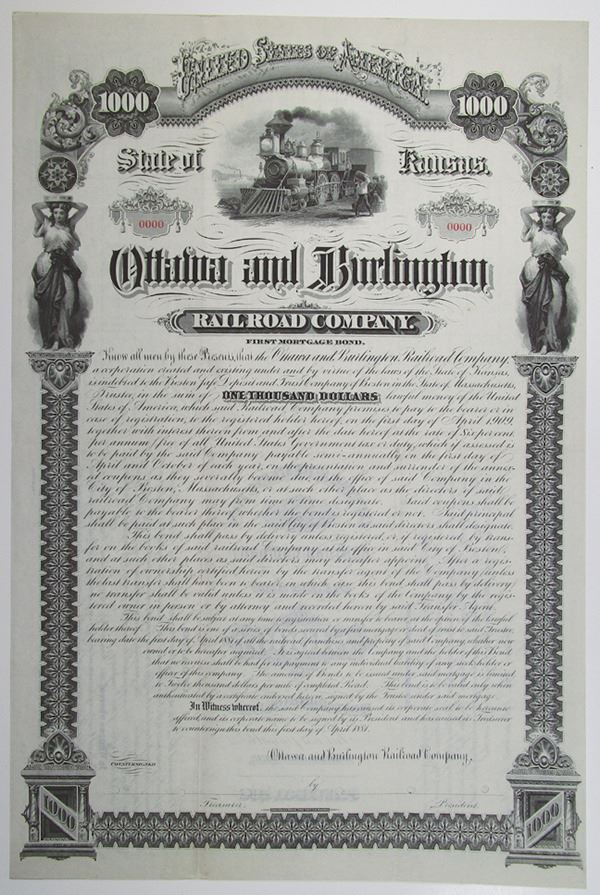 United States of America.
1000
1000
State of Kansas.
0000
0000
Ottawa and Burlington
RAILROAD COMPANY.
FIRST MORTGAGE BOND.
Know all men by these Presents, that the Ottawa and Burlington Railroad Company
a corporation created and existing under and by virtue of the laws of the State of Kansas,
is indebted to the Boston Safe Deposit and Trust Company of Boston in the State of Massachusetts,
Trustee, in the sum of ONE THOUSAND DOLLARS lawful money of the United
States of America, which said Railroad Company promises to pay to the bearer or in
case of registration, to the registered holder hereof, on the first day of April 1909,
together with interest thereon from and after the date hereof at the rate of six per cent
per annum (free of all United States Government tax or duty, which if assessed is
to be paid by the said Company) payable semi-annually on the first day of
April and October of each year, on the presentation and surrender of the annex-
ed coupons as they severally become due, at the office of said Company in the
City of Boston, Massachusetts, or at such other place as the directors of said
railroad Company may from time to time designate. Said coupons shall be
payable to the bearer thereof whether the bond is registered or not. Said principal
shall be paid at such place in the said City of Boston as said directors shall designate.
This bond shall pass by delivery unless registered, or if registered, by trans-
fer on the books of said railroad Company at its office in said City of Boston,
and at such other places as said directors may hereafter appoint. After a regis-
tration of ownership certified hereon by the transfer agent of the Company (unless
the last transfer shall have been to bearer, in which case this bond shall pass by delivery)
no transfer shall be valid unless it is made on the books of the Company by the regis-
tered owner in person or by attorney and recorded hereon by said Transfer Agent.
This bond shall be subject at any time to registration or transfer to bearer at the option of the lawful
holder thereof. This bond is one of a series of bonds secured by a first mortgage or deed of trust to said Trustee,
bearing date the first day of April 1881 of all the railroad franchises and property of said Company whether now
owned or to be hereafter acquired. It is agreed between the Company and the holder of this Bond
that no recourse shall be had for its payment to any individual liability of any stockholder or
officer of this company. The amount of Bonds to be issued under said mortgage is limited
to Twelve thousand dollars per mile of completed Road. This bond is to be valid only when
authenticated by a certificate endorsed hereon, signed by the Trustee under said mortgage.
In Witness whereof, the said Company has caused its corporate seal to be hereunto
affixed, and its corporate name to be signed by its President and has caused its Treasurer
to countersign this bond this first day of April 1881.
Ottawa and Burlington Railroad Company,
COUNTERSIGNED
by
Treasurer.
President.
1000
1000